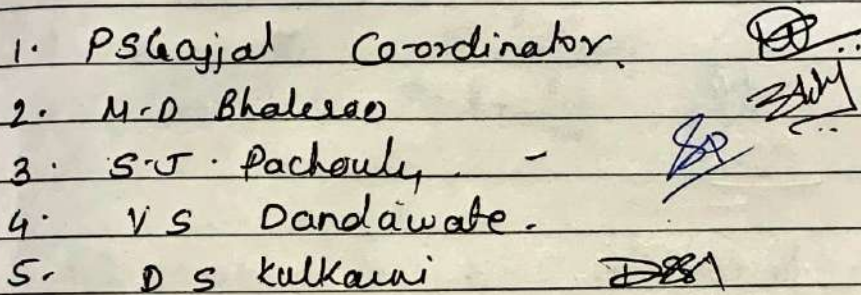 1. PSGajjal Co-ordinator.
2. M.D Bhalerao
3. S.J. Pachouly -
4. V S Dandawate.
5. D S Kulkarni